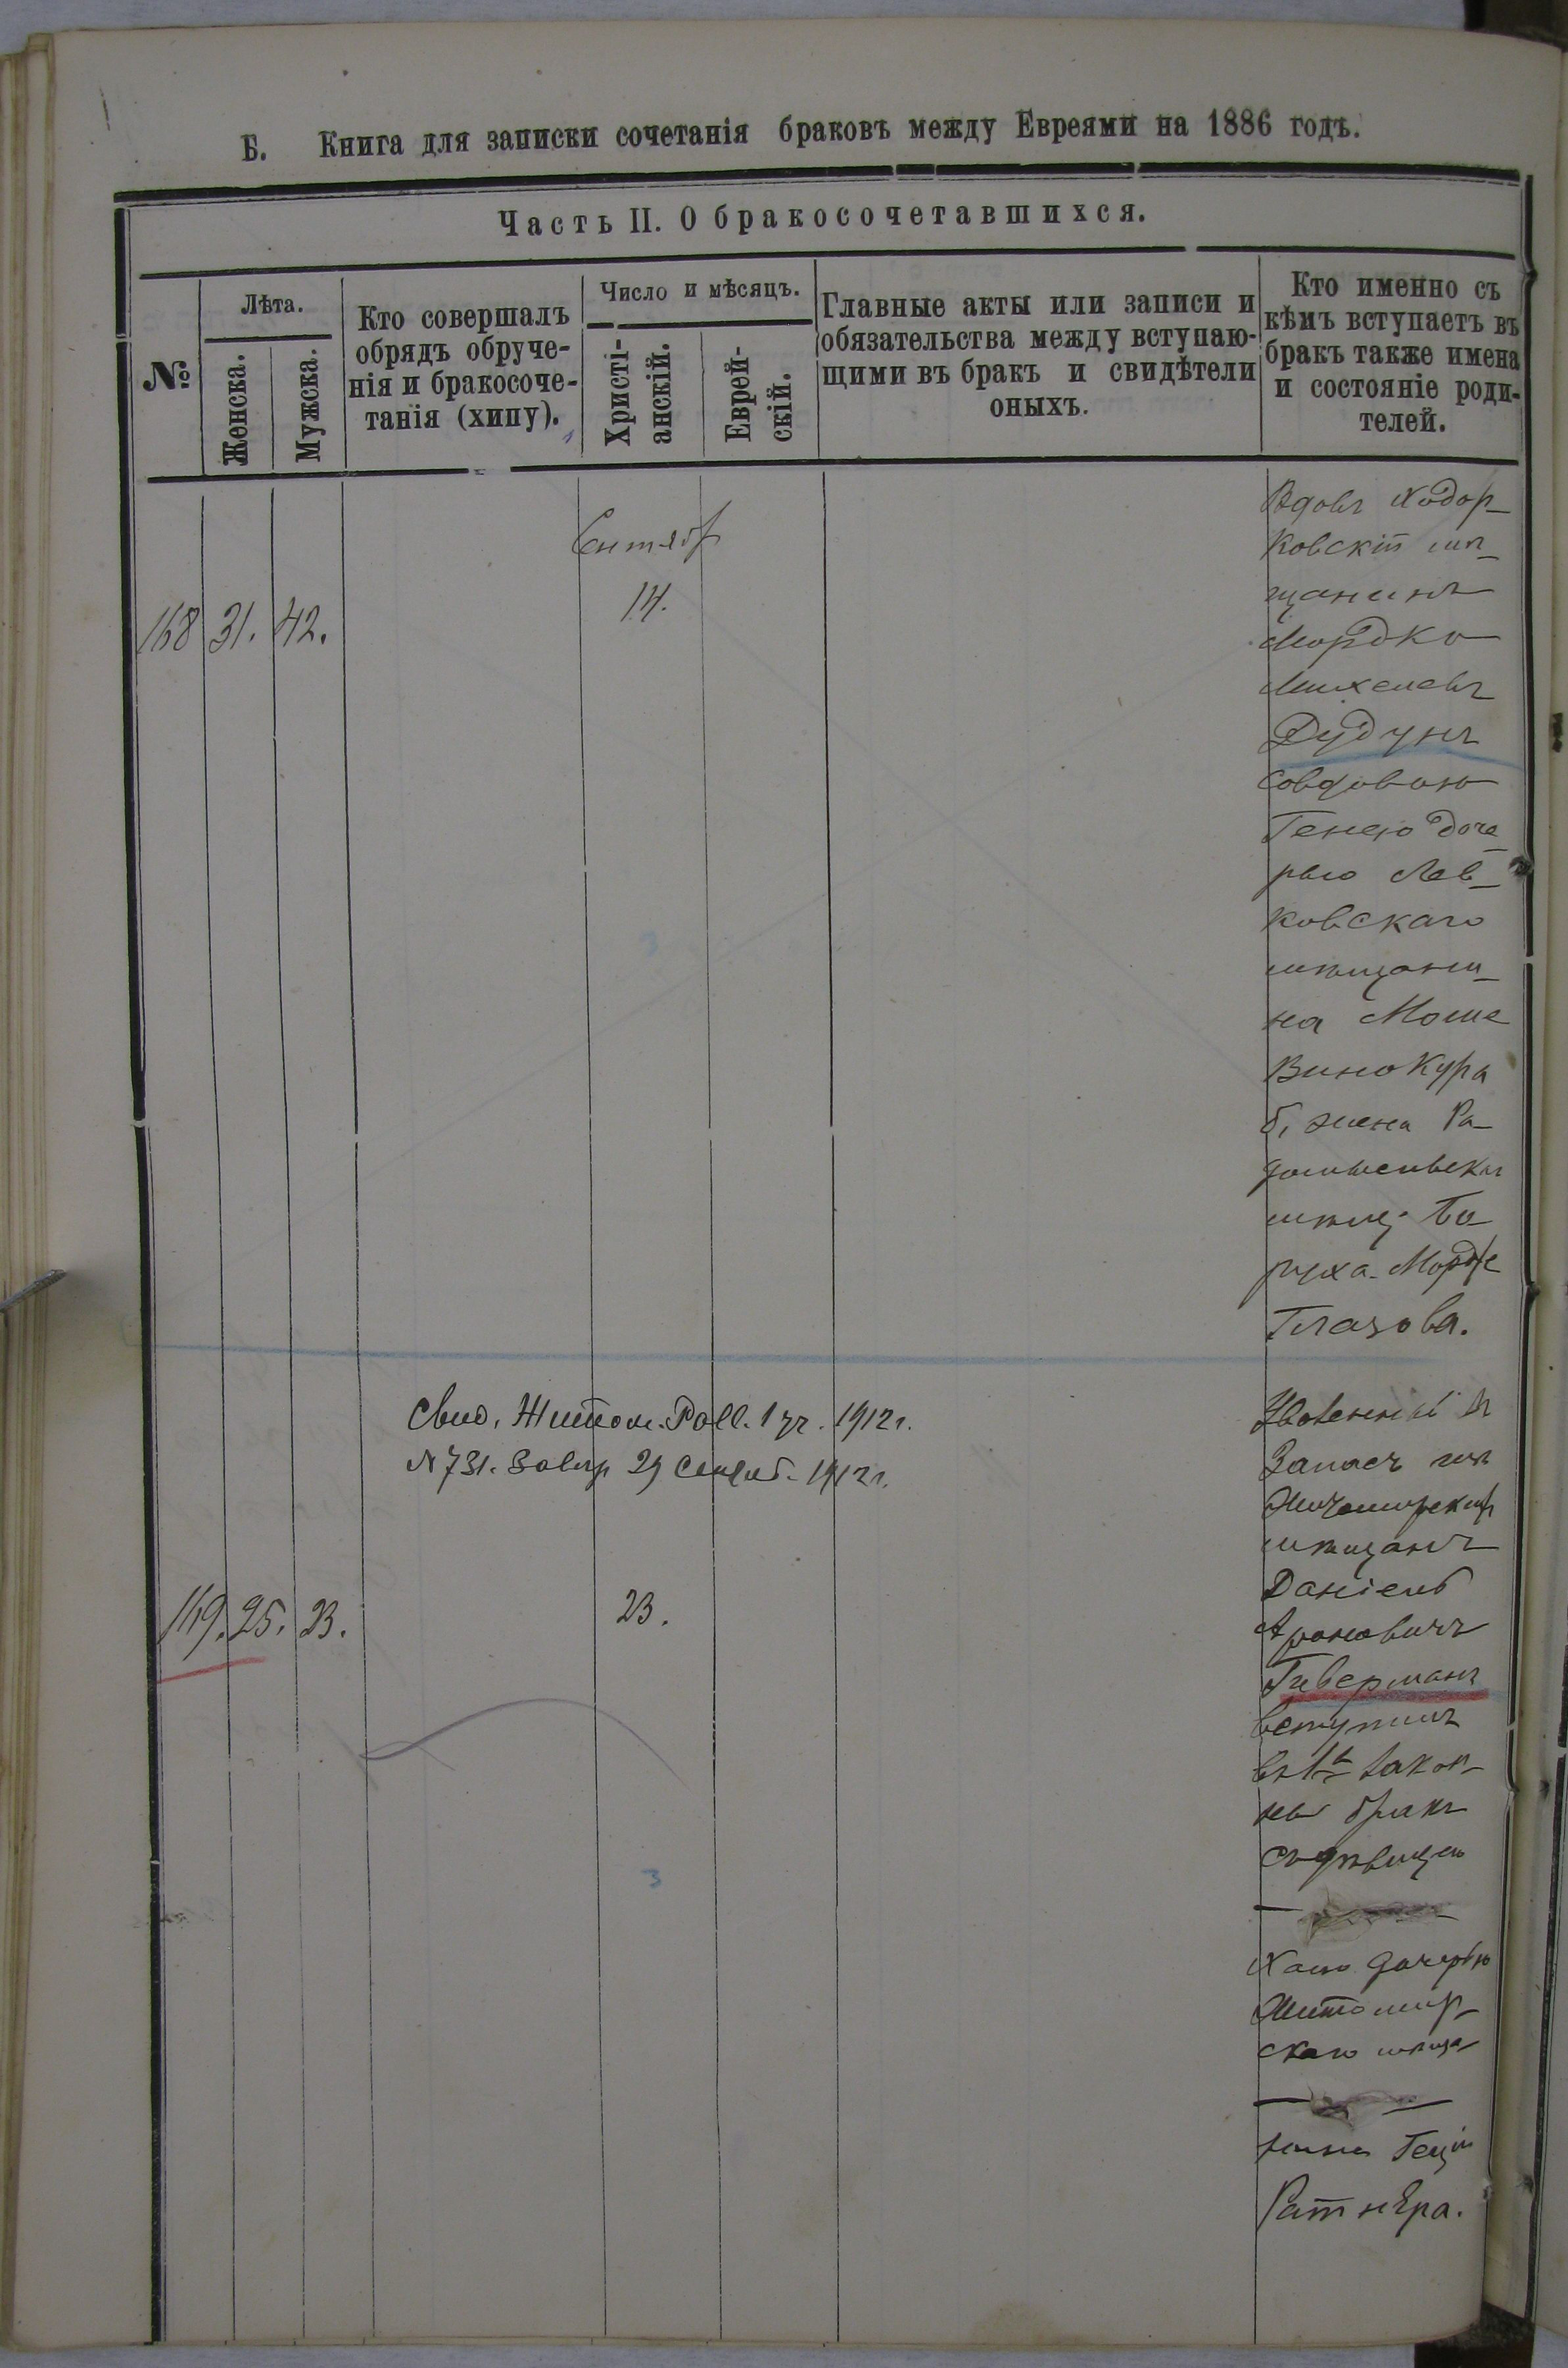 Б. Книга для записки сочетанія браковъ между Евреями на 1886 годъ.
Часть II. О бракосочетавшихся.
№
Лѣта.
Женска.
Мужска.
Кто совершалъ
обрядъ обруче-
нія и бракосоче-
танія (хипу).
Число и мѣсяцъ.
Христі-
анскій.
Еврей-
скій.
Главные акты или записи и
обязательства между вступаю-
щими въ бракъ и свидѣтели
оныхъ.
Кто именно съ
кѣмъ вступаетъ въ
бракъ также имена
и состояніе роди-
телей.
Сентябр
168 31. 42.
14.
Вдовъ Ходор-
ковскій мѣ-
щанинъ
Мордко
Михелевъ
Дудунъ
совдовою
Генею доче-
рью Лев-
ковскаго
мѣщани-
на Моше
Винокура
б, жена Ра-
домысльск
мѣщ. Бо
руха-Мордк
Глазова.
Свид. Житом. Равв. 1 уч. 1912 г.
№ 731. Завѣр 29 Сентяб. 1912 г.
169. 25. 23.
23.
Уволенный въ
Запасъ изъ
Житомирских
мѣщанъ
Даніель
Ароновичъ
Гиверманъ
вступилъ
въ 1й закон-
ны бракъ
съ дѣвицею
Хаею дочерью
Житомир-
скаго мѣща
нина Геци
Ратнера.